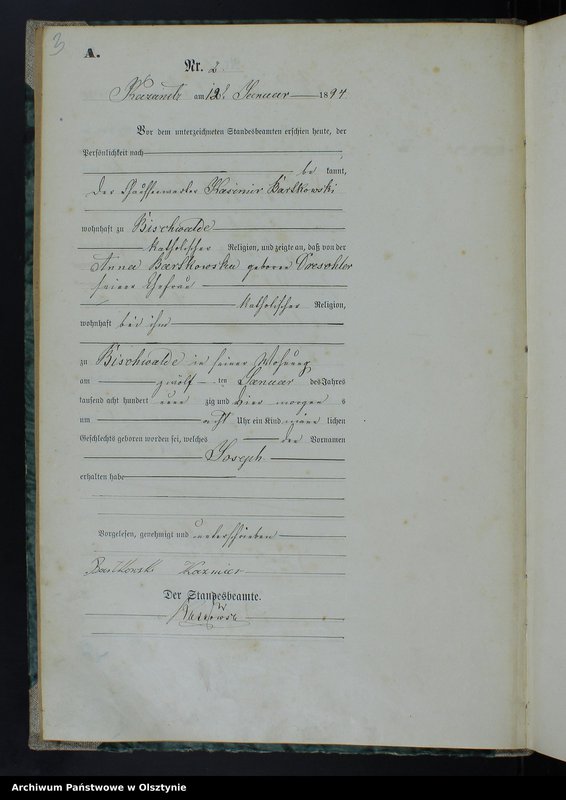 3
A.
Nr. 2
am 18. Januar 1894
Vor dem unterzeichneten Standesbeamten erschien heute, der
Persönlichkeit nach
be kannt,
der Chausseewärter Kasimir Bartkowski
wohnhaft zu Bischwalde
katholischer Religion, und zeigte an, daß von der
Anna Bartkowska geborene
seiner Ehefrau
katholischer Religion,
wohnhaft bei ihm
zu Bischwalde in seiner Wohnung
am zwölf ten Januar des Jahres
tausend acht hundert neun zig und vier morgen s
um acht Uhr ein Kind männ lichen
Geschlechts geboren worden sei, welches den Vornamen
Joseph
erhalten habe
Vorgelesen, genehmigt und unterschrieben
Bartkowski Kazmier
Der Standesbeamte.
Archiwum Państwowe w Olsztynie